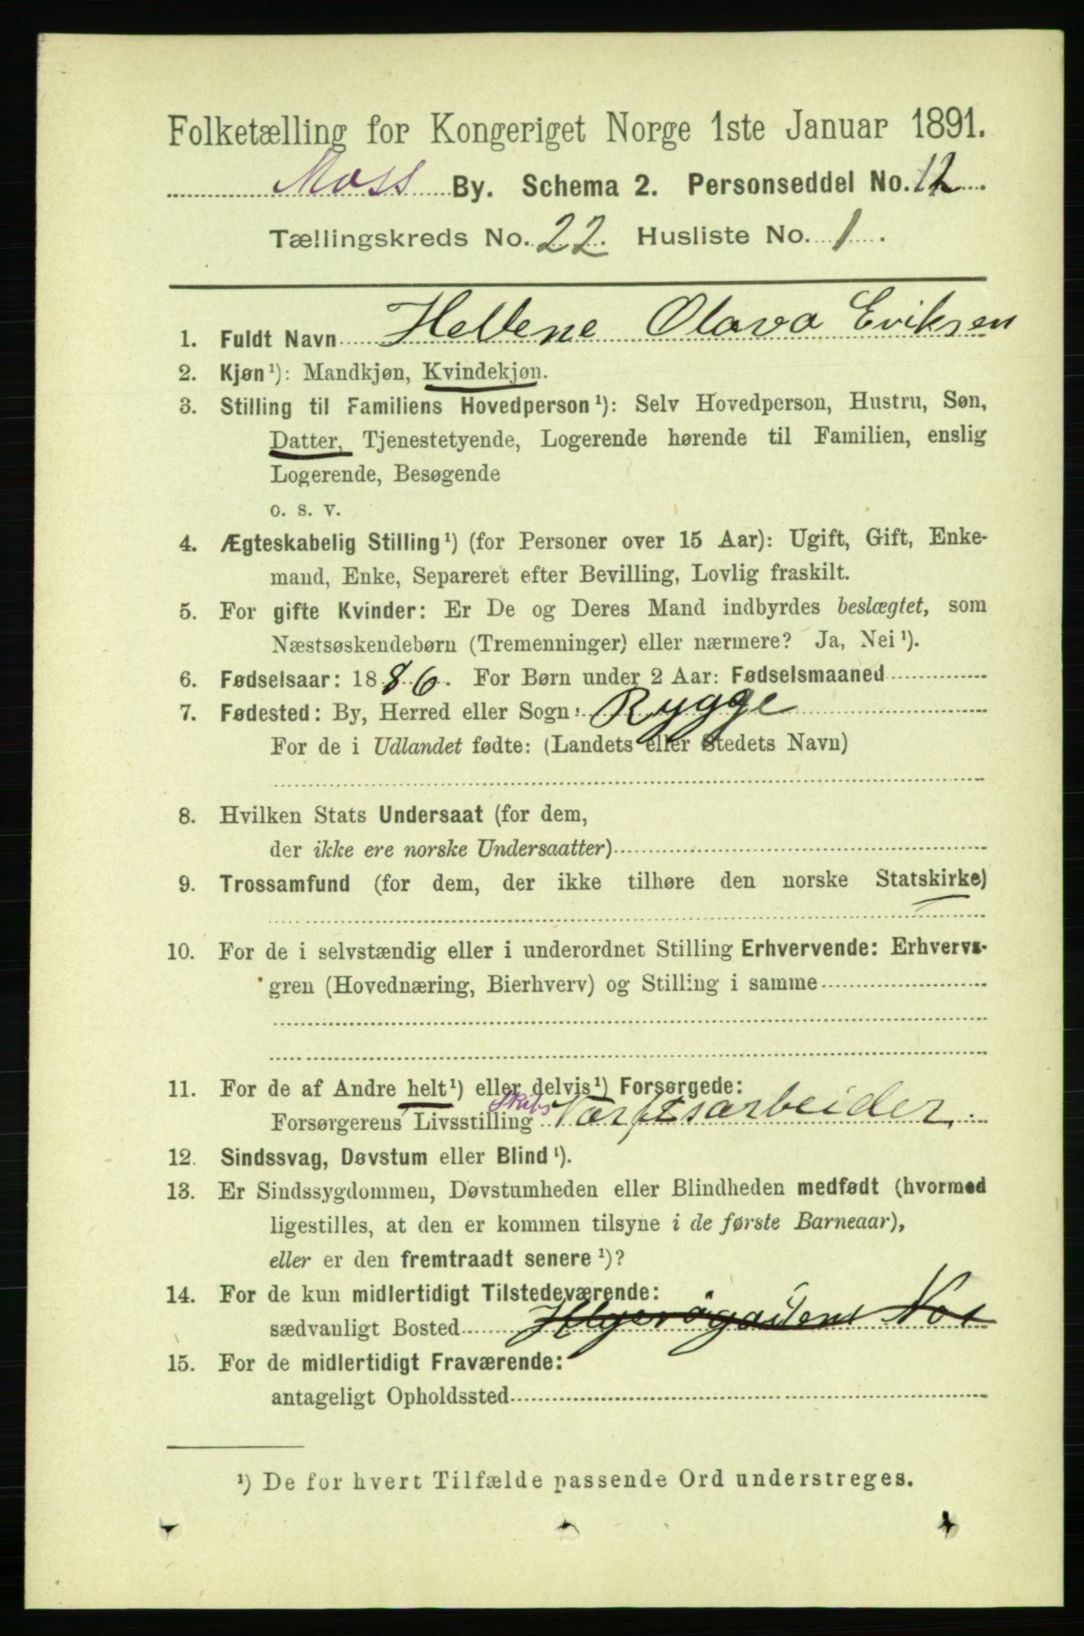 Folketælling for Kongeriget Norge 1ste Januar 1891.
Moss By. Schema 2. Personseddel No. 12.
Tællingskreds No. 22. Husliste No. 1.
1. Fuldt Navn Hellene Olava Eriksen
2. Kjøn¹): Mandkjøn, Kvindekjøn.
3. Stilling til Familiens Hovedperson¹): Selv Hovedperson, Hustru, Søn,
Datter, Tjenestetyende, Logerende hørende til Familien, enslig
Logerende, Besøgende
o. s. v.
4. Ægteskabelig Stilling¹) (for Personer over 15 Aar): Ugift, Gift, Enke-
mand, Enke, Separeret efter Bevilling, Lovlig fraskilt.
5. For gifte Kvinder: Er De og Deres Mand indbyrdes beslægtet, som
Næstsøskendebørn (Tremenninger) eller nærmere? Ja, Nei¹).
6. Fødselsaar: 1886. For Børn under 2 Aar: Fødselsmaaned
7. Fødested: By, Herred eller Sogn: Rygge
For de i Udlandet fødte: (Landets eller Stedets Navn)
8. Hvilken Stats Undersaat (for dem,
der ikke ere norske Undersaatter)
9. Trossamfund (for dem, der ikke tilhøre den norske Statskirke)
10. For de i selvstændig eller i underordnet Stilling Erhvervende: Erhvervs-
gren (Hovednæring, Bierhverv) og Stilling i samme
11. For de af Andre helt¹) eller delvis¹) Forsørgede:
Forsørgerens Livsstilling Skibs Værftsarbeider.
12. Sindssvag, Døvstum eller Blind¹).
13. Er Sindssygdommen, Døvstumheden eller Blindheden medfødt (hvormed
ligestilles, at den er kommen tilsyne i de første Barneaar),
eller er den fremtraadt senere¹)?
14. For de kun midlertidigt Tilstedeværende:
sædvanligt Bosted
15. For de midlertidigt Fraværende:
antageligt Opholdssted
¹) De for hvert Tilfælde passende Ord understreges.